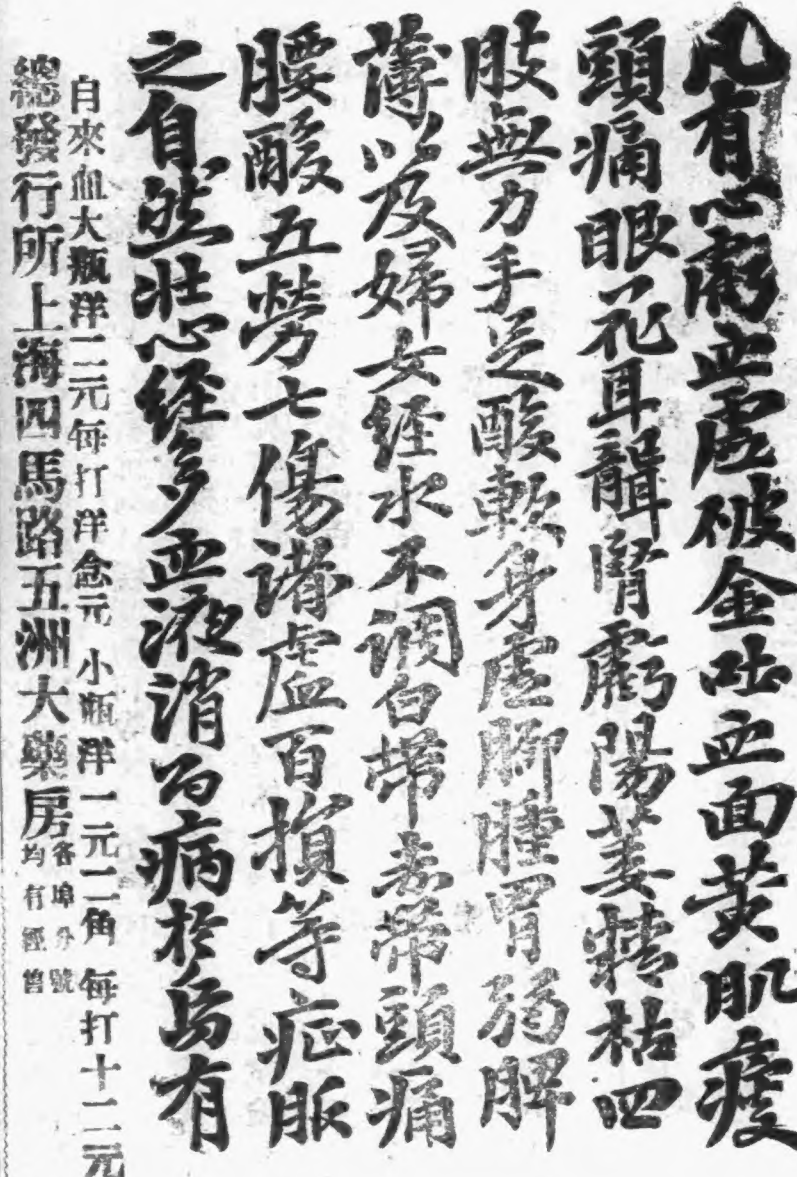 凡有心虧血虛破金吐血面黄肌瘦
頭痛眼花耳聾腎虧陽萎精枯四
肢無力手足酸軟身虛脚腫胃弱脾
薄以及婦女经水不调白带赤带頭痛
腰酸五勞七傷諸虛百損等症服
之自然壮心经多血液消百病於烏有
自來血大瓶洋二元每打洋念元 小瓶洋一元二角 每打十二元
總發行所上海四馬路五洲大藥房各埠分號均有經售